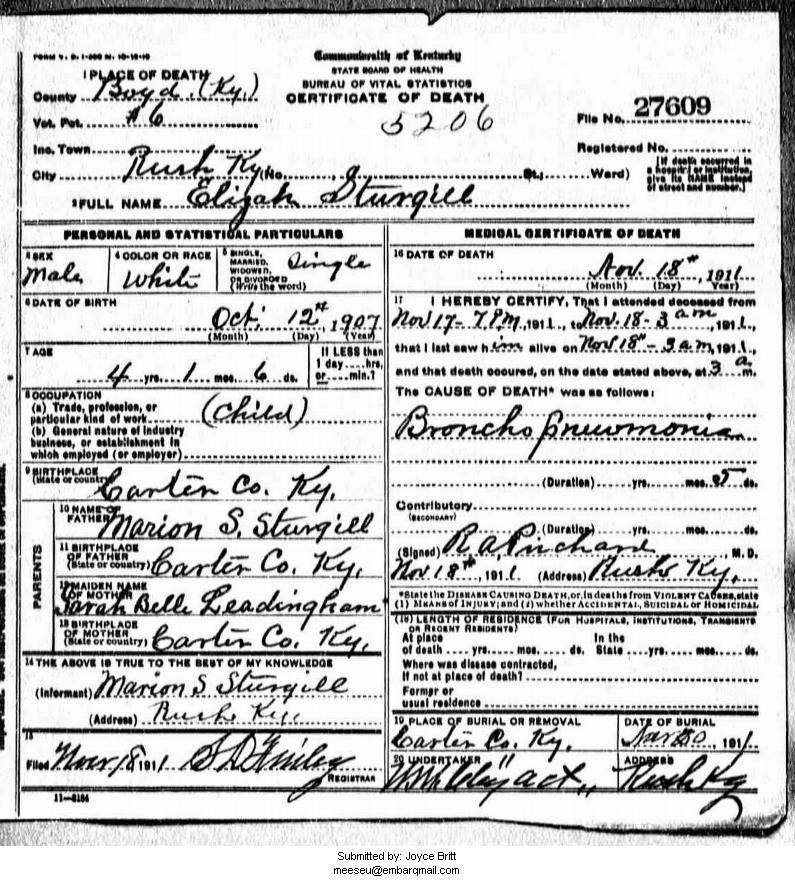 FORM V. S. 1-
Commonwealth of Kentucky
STATE BOARD OF HEALTH
BUREAU OF VITAL STATISTICS
CERTIFICATE OF DEATH
1 PLACE OF DEATH
County Boyd. (Ky.)
Vot. Pct. #6
5206
File No. 27609
Inc. Town
Registered No.
City Rush Ky. (No. St., Ward)
[If death occurred in a hospital or institution, give its NAME instead of street and number.]
2 FULL NAME Elizah Sturgill
PERSONAL AND STATISTICAL PARTICULARS
3 SEX Male
4 COLOR OR RACE White
5 SINGLE, MARRIED, WIDOWED, OR DIVORCED (Write the word) Single
6 DATE OF BIRTH
Oct. 12th, 1907
(Month) (Day) (Year)
7 AGE
4 yrs. 1 mos. 6 ds.
If LESS than 1 day....hrs, or....min.?
8 OCCUPATION
(a) Trade, profession, or particular kind of work (Child)
(b) General nature of industry business, or establishment in which employed (or employer)
9 BIRTHPLACE
(State or country) Carter Co. Ky.
PARENTS
10 NAME OF FATHER Marion S. Sturgill
11 BIRTHPLACE OF FATHER (State or country) Carter Co. Ky.
12 MAIDEN NAME OF MOTHER Sarah Belle Leadingham
13 BIRTHPLACE OF MOTHER (State or country) Carter Co. Ky.
14 THE ABOVE IS TRUE TO THE BEST OF MY KNOWLEDGE
(Informant) Marion S Sturgill
(Address) Rush Ky.
15
Filed Nov 18 1911
REGISTRAR
11-3184
MEDICAL CERTIFICATE OF DEATH
16 DATE OF DEATH
Nov. 18th, 1911
(Month) (Day) (Year)
17 I HEREBY CERTIFY, That I attended deceased from
Nov 17- 7 P.M, 1911, to Nov. 18- 3 am, 1911,
that I last saw him alive on Nov 18th - 3 am, 1911,
and that death occured, on the date stated above, at 3 a m.
The CAUSE OF DEATH* was as follows:
Broncho pneumonia
(Duration) yrs. mos. 5 ds.
Contributory
(SECONDARY)
(Duration) yrs. mos. ds.
(Signed) R A Prichard, M. D.
Nov 18th, 1911 (Address) Rush Ky.
*State the DISEASE CAUSING DEATH, or, in deaths from VIOLENT CAUSES, state
(1) MEANS OF INJURY; and (2) whether ACCIDENTAL, SUICIDAL or HOMICIDAL
(18) LENGTH OF RESIDENCE (FOR HOSPITALS, INSTITUTIONS, TRANSIENTS OR RECENT RESIDENTS)
At place of death yrs. mos. ds. In the State yrs. mos. ds.
Where was disease contracted,
If not at place of death?
Former or
usual residence
19 PLACE OF BURIAL OR REMOVAL
Carter Co. Ky.
DATE OF BURIAL
1911
20 UNDERTAKER
ADDRESS
Rush Ky
Submitted by: Joyce Britt
meeseu@embarqmail.com